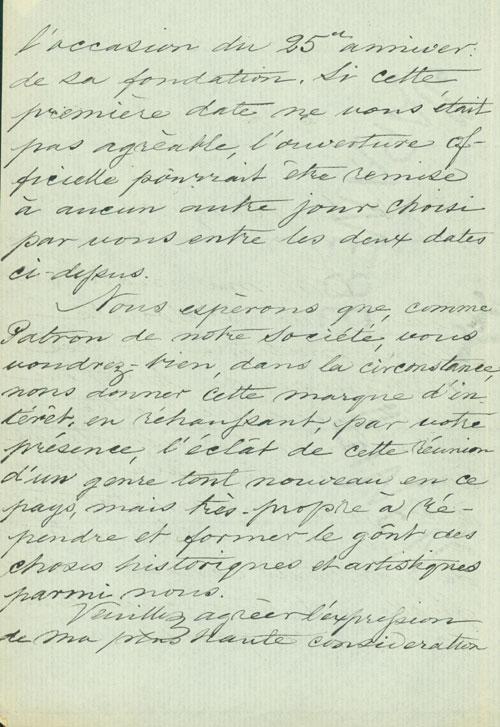 l'occasion du 25e anniver.
de sa fondation. Si cette
première date ne vous était
pas agréable, l'ouverture of-
ficielle pourrait être remise
à aucun autre jour choisi
par vous entre les deux dates
ci-dessus.
Nous espérons que, comme
Patron de notre Société, vous
voudrez-bien, dans la circonstance,
nous donner cette marque d'in-
térêt, en réhaussant, par votre
présence, l'éclat de cette réunion
d'un genre tout nouveau en ce
pays, mais très-propre à ré-
pendre et former le goût des
choses historiques et artistiques
parmi nous.
Veuillez agréer l'expression
de ma plus haute consideration